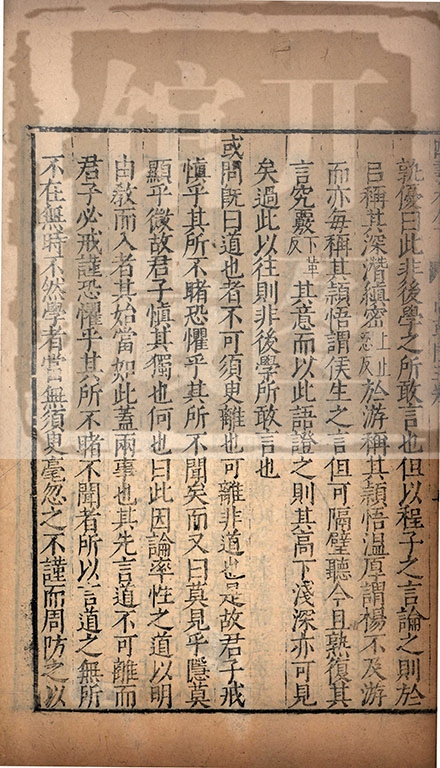 孰優曰此非後學之所敢言也但以程子之言論之則於
呂稱其深潛縝密上止忍反於游稱其穎悟溫厚謂楊不及游
而亦每稱其穎悟謂侯生之言但可隔壁聽今且熟復其
言究覈下革反其意而以此語證之則其高下淺深亦可見
矣過此以往則非後學所敢言也
或問既曰道也者不可須臾離也可離非道也是故君子戒
慎乎其所不睹恐懼乎其所不聞矣而又曰莫見乎隱莫
顯乎微故君子慎其獨也何也曰此因論率性之道以明
由教而入者其始當如此蓋兩事也其先言道不可離而
君子必戒謹恐懼乎其所不睹不聞者所以言道之無所
不在無時不然學者當無須臾毫忽之不謹而周防之以